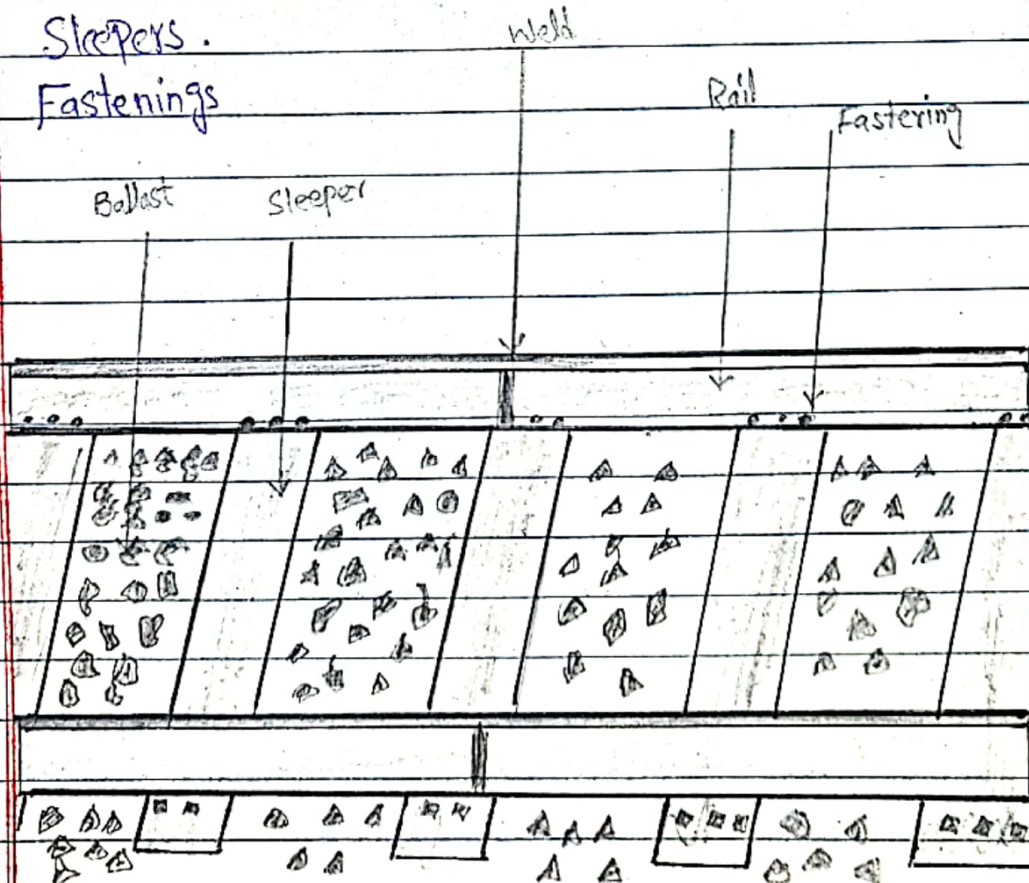 Sleepers.
Fastenings
Weld
Rail
Fastering
Ballast
Sleeper